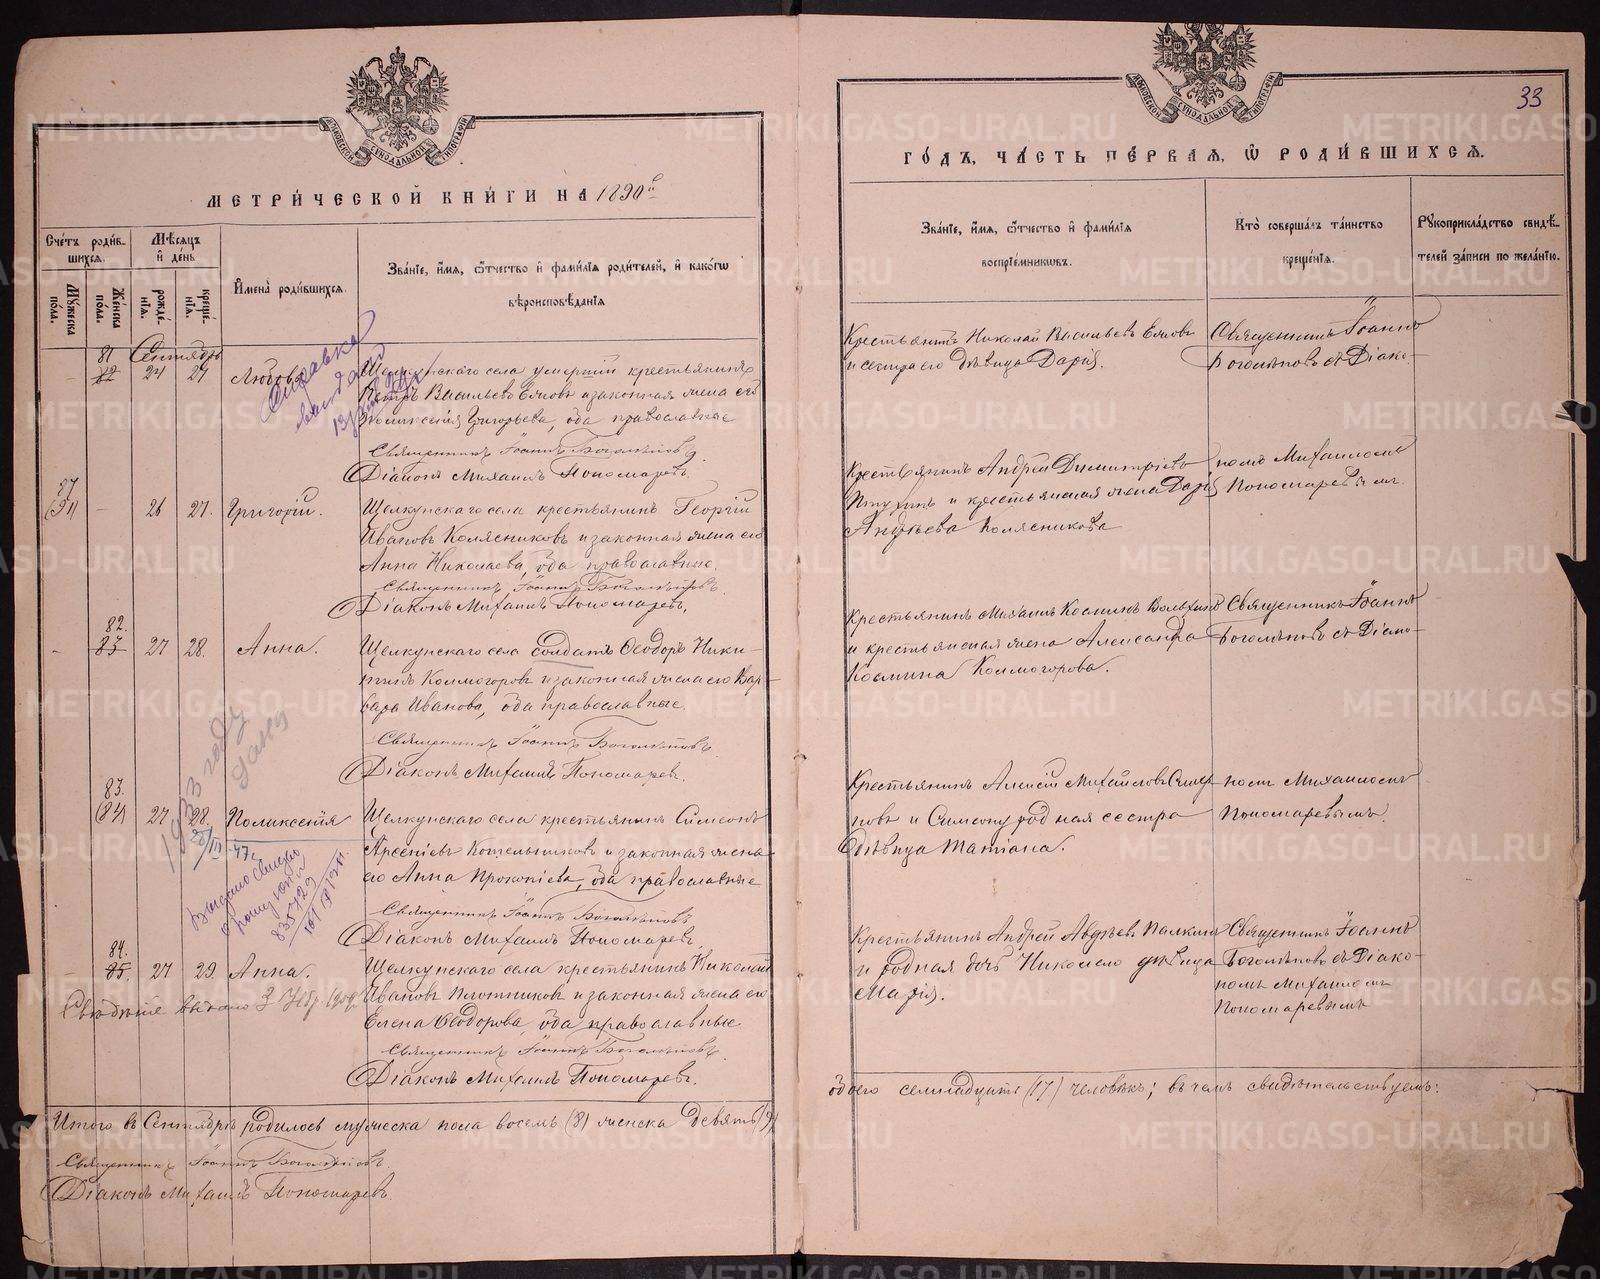 МЕТРИ́ЧЕСКОЙ КНИ́ГИ НА 1890 г
Сче́тъ роди́в-
шихся.
Му́жеска
по́ла.
Же́нска
по́ла.
Мѣ́сяцъ
и҆ де́нь
рожде́-
нїѧ.
креще́-
нїѧ.
И҆мена̀ роди́вшихся.
Зва́нїе, и҆́мя, ѻ҆́тчество и҆ фами́лїѧ роди́телей, и҆ како́гѡ
вѣроисповѣ́данїѧ
Сентябрь
81
82 24 27 Любовь
Щелкунскаго села умершій крестьянинъ
Петръ Васильевъ и законная жена его
Поликсенія Григорьева, оба православные
Священникъ Іоаннъ Боголѣповъ
Діаконъ Михаилъ Пономаревъ.
Справка
выдана
37
– 26 27. Григорій.
Щелкунскаго села крестьянинъ Георгій
Ивановъ Колясниковъ и законная жена его
Анна Николаева, оба православные.
Священникъ Іоаннъ Боголѣповъ
Діаконъ Михаилъ Пономаревъ.
82.
- 83 27 28. Анна.
Щелкунскаго села солдатъ Ѳеодоръ Ники-
тинъ Колмогоровъ и законная жена его Вар-
вара Иванова, оба православные
Священникъ Іоаннъ Боголѣповъ
Діаконъ Михаилъ Пономаревъ.
1933 году
83.
(84) 27 28. Поликсенія
Щелкунскаго села крестьянинъ Симеонъ
Арсеніевъ Котельниковъ и законная жена
его Анна Прокопіева, оба православные
Священникъ Іоаннъ Боголѣповъ
Діаконъ Михаилъ Пономаревъ.
47г
Выдано свид-во
84.
- 85. 27 29. Анна.
Щелкунскаго села крестьянинъ Николай
Ивановъ Плотниковъ и законная жена его
Елена Ѳеодорова, оба православные
Священникъ Іоаннъ Боголѣповъ.
Діаконъ Михаилъ Пономаревъ.
выдано 3
Итого въ Сентябрѣ родилось мужеска пола восемь (8) женска девять (9)
Священникъ Іоаннъ Боголѣповъ.
Діаконъ Михаилъ Пономаревъ.
33
ГО́ДЪ, ЧА́СТЬ ПЕ́РВАЯ, Ѡ҆ РОДИ́ВШИХСЯ.
Зва́нїе, и҆́мя, ѻ҆́тчество и҆ фами́лїѧ
воспрїе́мниковъ.
Кто̀ соверша́лъ та́инство
креще́нїѧ.
Рꙋкоприкла́дство свидѣ́-
телей за́писи по жела́нїю.
Крестьянинъ Николай Васильевъ
и сестра его дѣвица Дарія.
Священникъ Іоаннъ
Боголѣповъ съ Діако-
Крестьянинъ Андрей Димитріевъ
и крестьянская жена Дарія
Андреева Колясникова
номъ Михаиломъ
Пономаревымъ.
Крестьянинъ Михаилъ Косминъ
и крестьянская жена Александра
Космина Колмогорова.
Священникъ Іоаннъ
Боголѣповъ съ Діако-
Крестьянинъ Алексій Михайловъ
новъ и Симеону родная сестра
дѣвица Татіана.
номъ Михаиломъ
Пономаревымъ.
Крестьянинъ Андрей Андреевъ
и родная дочь Николаю дѣвица
Марія.
Священникъ Іоаннъ
Боголѣповъ съ Діако-
номъ Михаиломъ
Пономаревымъ
обоего семнадцать (17) человѣкъ; въ чемъ свидѣтельствуемъ:
METRIKI.GASO-URAL.RU